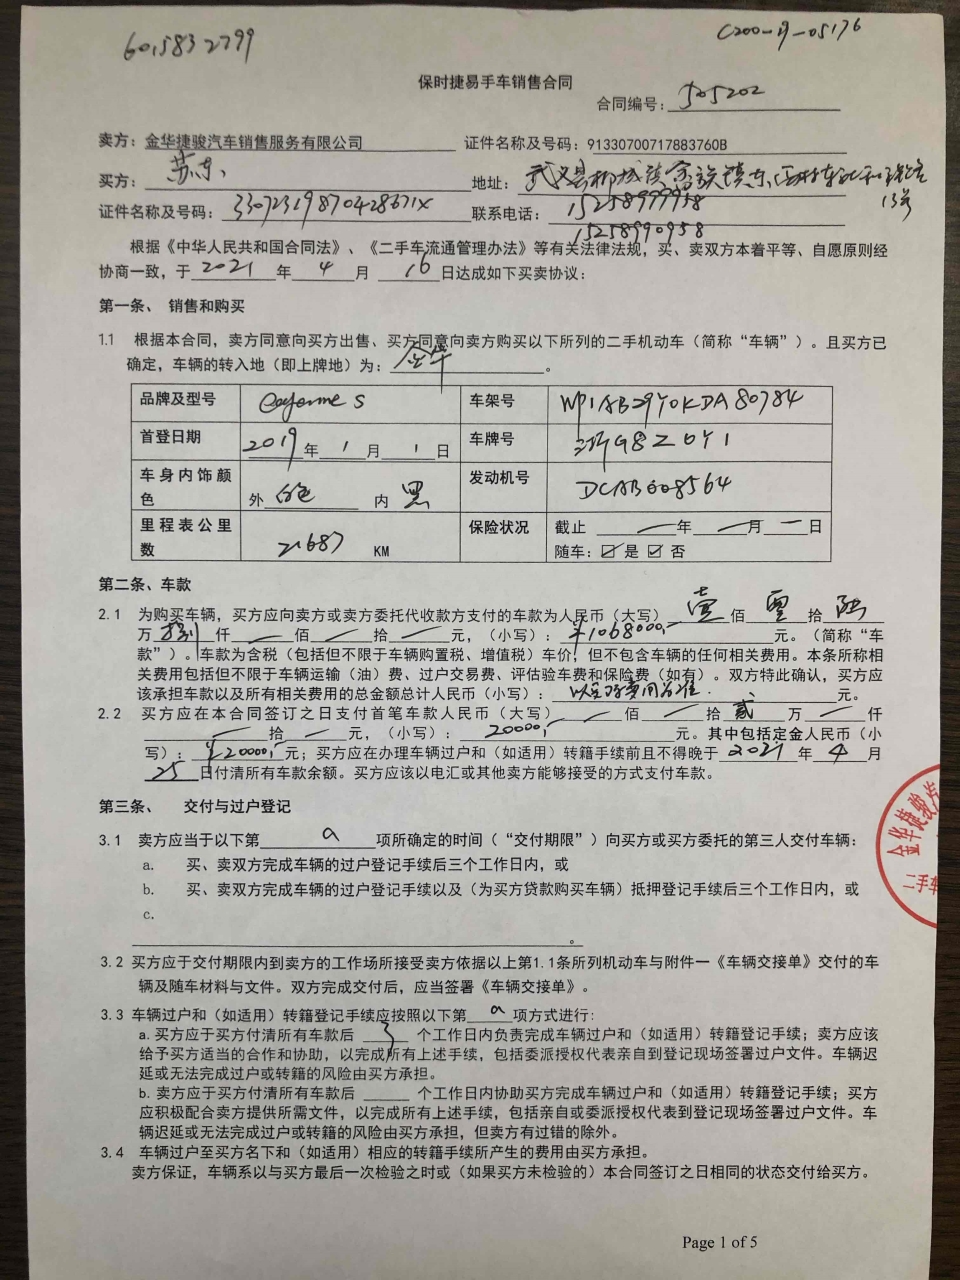 6015832799
C200-19-05176
保时捷易手车销售合同
合同编号: 505202
卖方: 金华捷骏汽车销售服务有限公司 证件名称及号码: 91330700717883760B
买方: 苏东 地址: 武义县柳城镇畲族镇东西村东
13号
证件名称及号码: 33072319870428671X 联系电话: 15258999958
15258990958
根据《中华人民共和国合同法》、《二手车流通管理办法》等有关法律法规,买、卖双方本着平等、自愿原则经
协商一致,于 2021 年 4 月 16 日达成如下买卖协议:
第一条、 销售和购买
1.1 根据本合同,卖方同意向买方出售、买方同意向卖方购买以下所列的二手机动车(简称“车辆”)。且买方已
确定,车辆的转入地(即上牌地)为: 金华 。
品牌及型号 Cayenne S 车架号 WP1AB29Y0KDA80784
首登日期 2019 年 1 月 1 日 车牌号 浙G8Z0Y1
车身内饰颜色 外 白色 内 黑 发动机号 DCAB008564
里程表公里数 21687 KM 保险状况 截止 — 年 — 月 — 日
随车: ☑ 是 ☑ 否
第二条、车款
2.1 为购买车辆,买方应向卖方或卖方委托代收款方支付的车款为人民币(大写) 壹 佰 零 拾 陆
万 捌 仟 — 佰 — 拾 — 元,(小写): ¥1068000.- 元。(简称“车
款”)。车款为含税(包括但不限于车辆购置税、增值税)车价,但不包含车辆的任何相关费用。本条所称相
关费用包括但不限于车辆运输(油)费、过户交易费、评估验车费和保险费(如有)。双方特此确认,买方应
该承担车款以及所有相关费用的总金额总计人民币(小写): 以实际费用为准. 元。
2.2 买方应在本合同签订之日支付首笔车款人民币(大写) — 佰 — 拾 贰 万 — 仟
— 拾 — 元,(小写): 20000.- 元。其中包括定金人民币(小
写): ¥20000.- 元;买方应在办理车辆过户和(如适用)转籍手续前且不得晚于 2021 年 4 月
25 日付清所有车款余额。买方应该以电汇或其他卖方能够接受的方式支付车款。
第三条、 交付与过户登记
3.1 卖方应当于以下第 a 项所确定的时间(“交付期限”)向买方或买方委托的第三人交付车辆:
a. 买、卖双方完成车辆的过户登记手续后三个工作日内,或
b. 买、卖双方完成车辆的过户登记手续以及(为买方贷款购买车辆)抵押登记手续后三个工作日内,或
c.
。
金华捷骏汽
二手车
3.2 买方应于交付期限内到卖方的工作场所接受卖方依据以上第1.1条所列机动车与附件一《车辆交接单》交付的车
辆及随车材料与文件。双方完成交付后,应当签署《车辆交接单》。
3.3 车辆过户和(如适用)转籍登记手续应按照以下第 a 项方式进行:
a. 买方应于买方付清所有车款后 3 个工作日内负责完成车辆过户和(如适用)转籍登记手续;卖方应该
给予买方适当的合作和协助,以完成所有上述手续,包括委派授权代表亲自到登记现场签署过户文件。车辆迟
延或无法完成过户或转籍的风险由买方承担。
b. 卖方应于买方付清所有车款后 ____ 个工作日内协助买方完成车辆过户和(如适用)转籍登记手续;买方
应积极配合卖方提供所需文件,以完成所有上述手续,包括亲自或委派授权代表到登记现场签署过户文件。车
辆迟延或无法完成过户或转籍的风险由买方承担,但卖方有过错的除外。
3.4 车辆过户至买方名下和(如适用)相应的转籍手续所产生的费用由买方承担。
卖方保证,车辆系以与买方最后一次检验之时或(如果买方未检验的)本合同签订之日相同的状态交付给买方。
Page 1 of 5